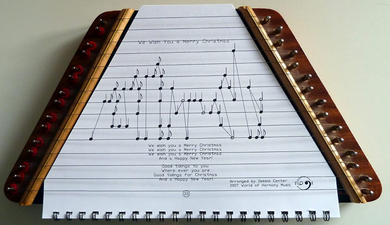 We Wish You a Merry Christmas
We wish you a Merry Christmas
We wish you a Merry Christmas
We wish you a Merry Christmas
And a Happy New Year!
Good tidings to you
Where ever you are
Good tidings for Christmas
And a Happy New Year!
Arranged by Debbie Center
2007 World of Harmony Music